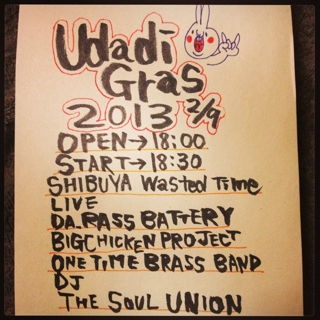 Udadi
Gras
2013 2/9
OPEN→18:00
START→18:30
SHIBUYA Wasted Time
LIVE
DA.RASS BATTERY
BIGCHICKEN PROJECT
ONE TIME BRASS BAND
DJ
THE SOUL UNION